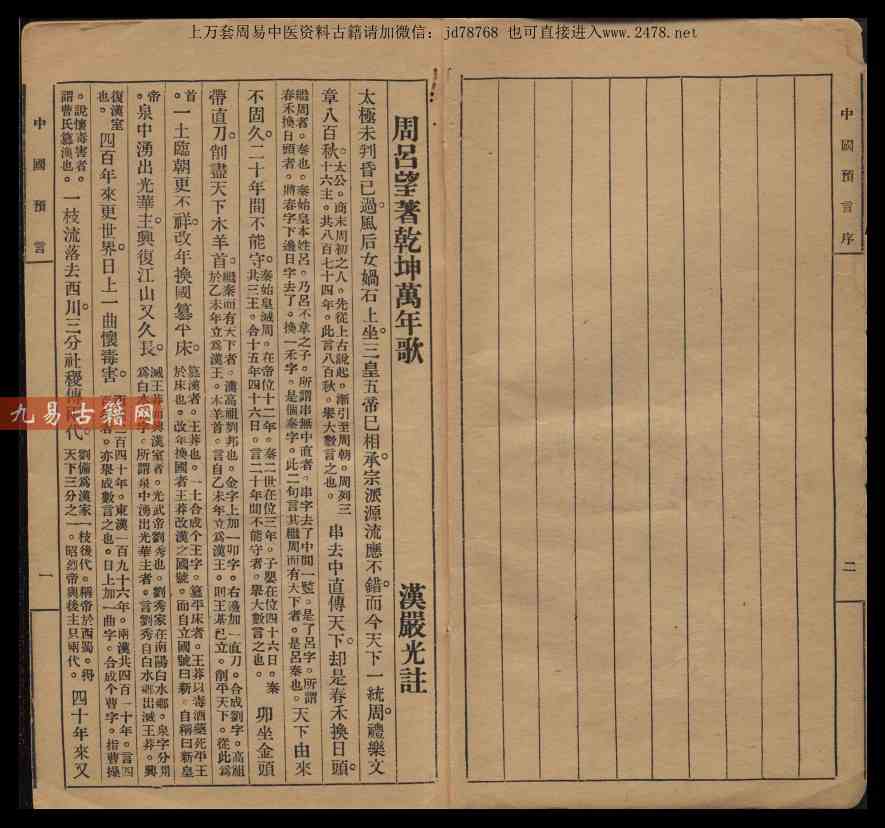 上万套周易中医资料古籍请加微信：jd78768 也可直接进入www.2478.net
中國預言序
二
周呂望著乾坤萬年歌 漢嚴光註
太極未判昏已過。風后女媧石上坐。三皇五帝已相承。宗派源流應不錯。而今天下一統周。禮樂文
章八百秋。太公。商末周初之人。先從上古說起。漸引至周朝。周列三十六主。共八百七十四年。此言八百秋。舉大數言之也。串去中直傳天下。却是春禾換日頭。
繼周者。秦也。秦始皇本姓呂。乃呂不韋之子。所謂串無中直者。串字去了中間一豎。是了呂字。所謂春禾換日頭者。將春字下邊日字去了。換一禾字。是個秦字。此二句言其繼周而有天下者。是呂秦也。天下由來
不固久。二十年間不能守。秦始皇滅周。在帝位十二年。秦二世在位三年。子嬰在位四十六日。秦共三王。合十五年四十六日。言二十年間不能守者。舉大數言之也。卯坐金頭
帶直刀。削盡天下木羊首。繼秦而有天下者。漢高祖劉邦也。金字上加一卯字。右邊加一直刀。合成劉字。高祖於乙未年立爲漢王。木羊首。言自乙未年立爲漢王。則王基已立。削平天下。從此爲
首。一土臨朝更不祥。改年換國篡平床。篡漢者。王莽也。一土合成个王字。篡平床者。王莽以毒酒藥死平王於床也。改年換國者王莽改漢之國號。而自立國號曰新。自稱曰新皇
帝。泉中湧出光華主。興復江山又久長。滅王莽而興漢室者。光武帝劉秀也。劉秀家在南陽白水鄉。泉字分用爲白水字。所謂泉中湧出光華主者。言劉秀自白水鄉出滅王莽。興
復漢室也。四百年來更世界。日上一曲懷毒害。西漢二百一十四年。東漢一百九十六年。兩漢共四百一十年。言四百者。亦舉成數言之也。日上加一曲字。合成个曹字。指曹操
。說懷毒害者。謂曹氏篡漢也。一枝流落去西川。三分社稷傳兩代。劉備爲漢家一枝後代。稱帝於西蜀。得天下三分之一。昭烈帝與後主只兩代。四十年來又
中國預言
一
九易古籍网